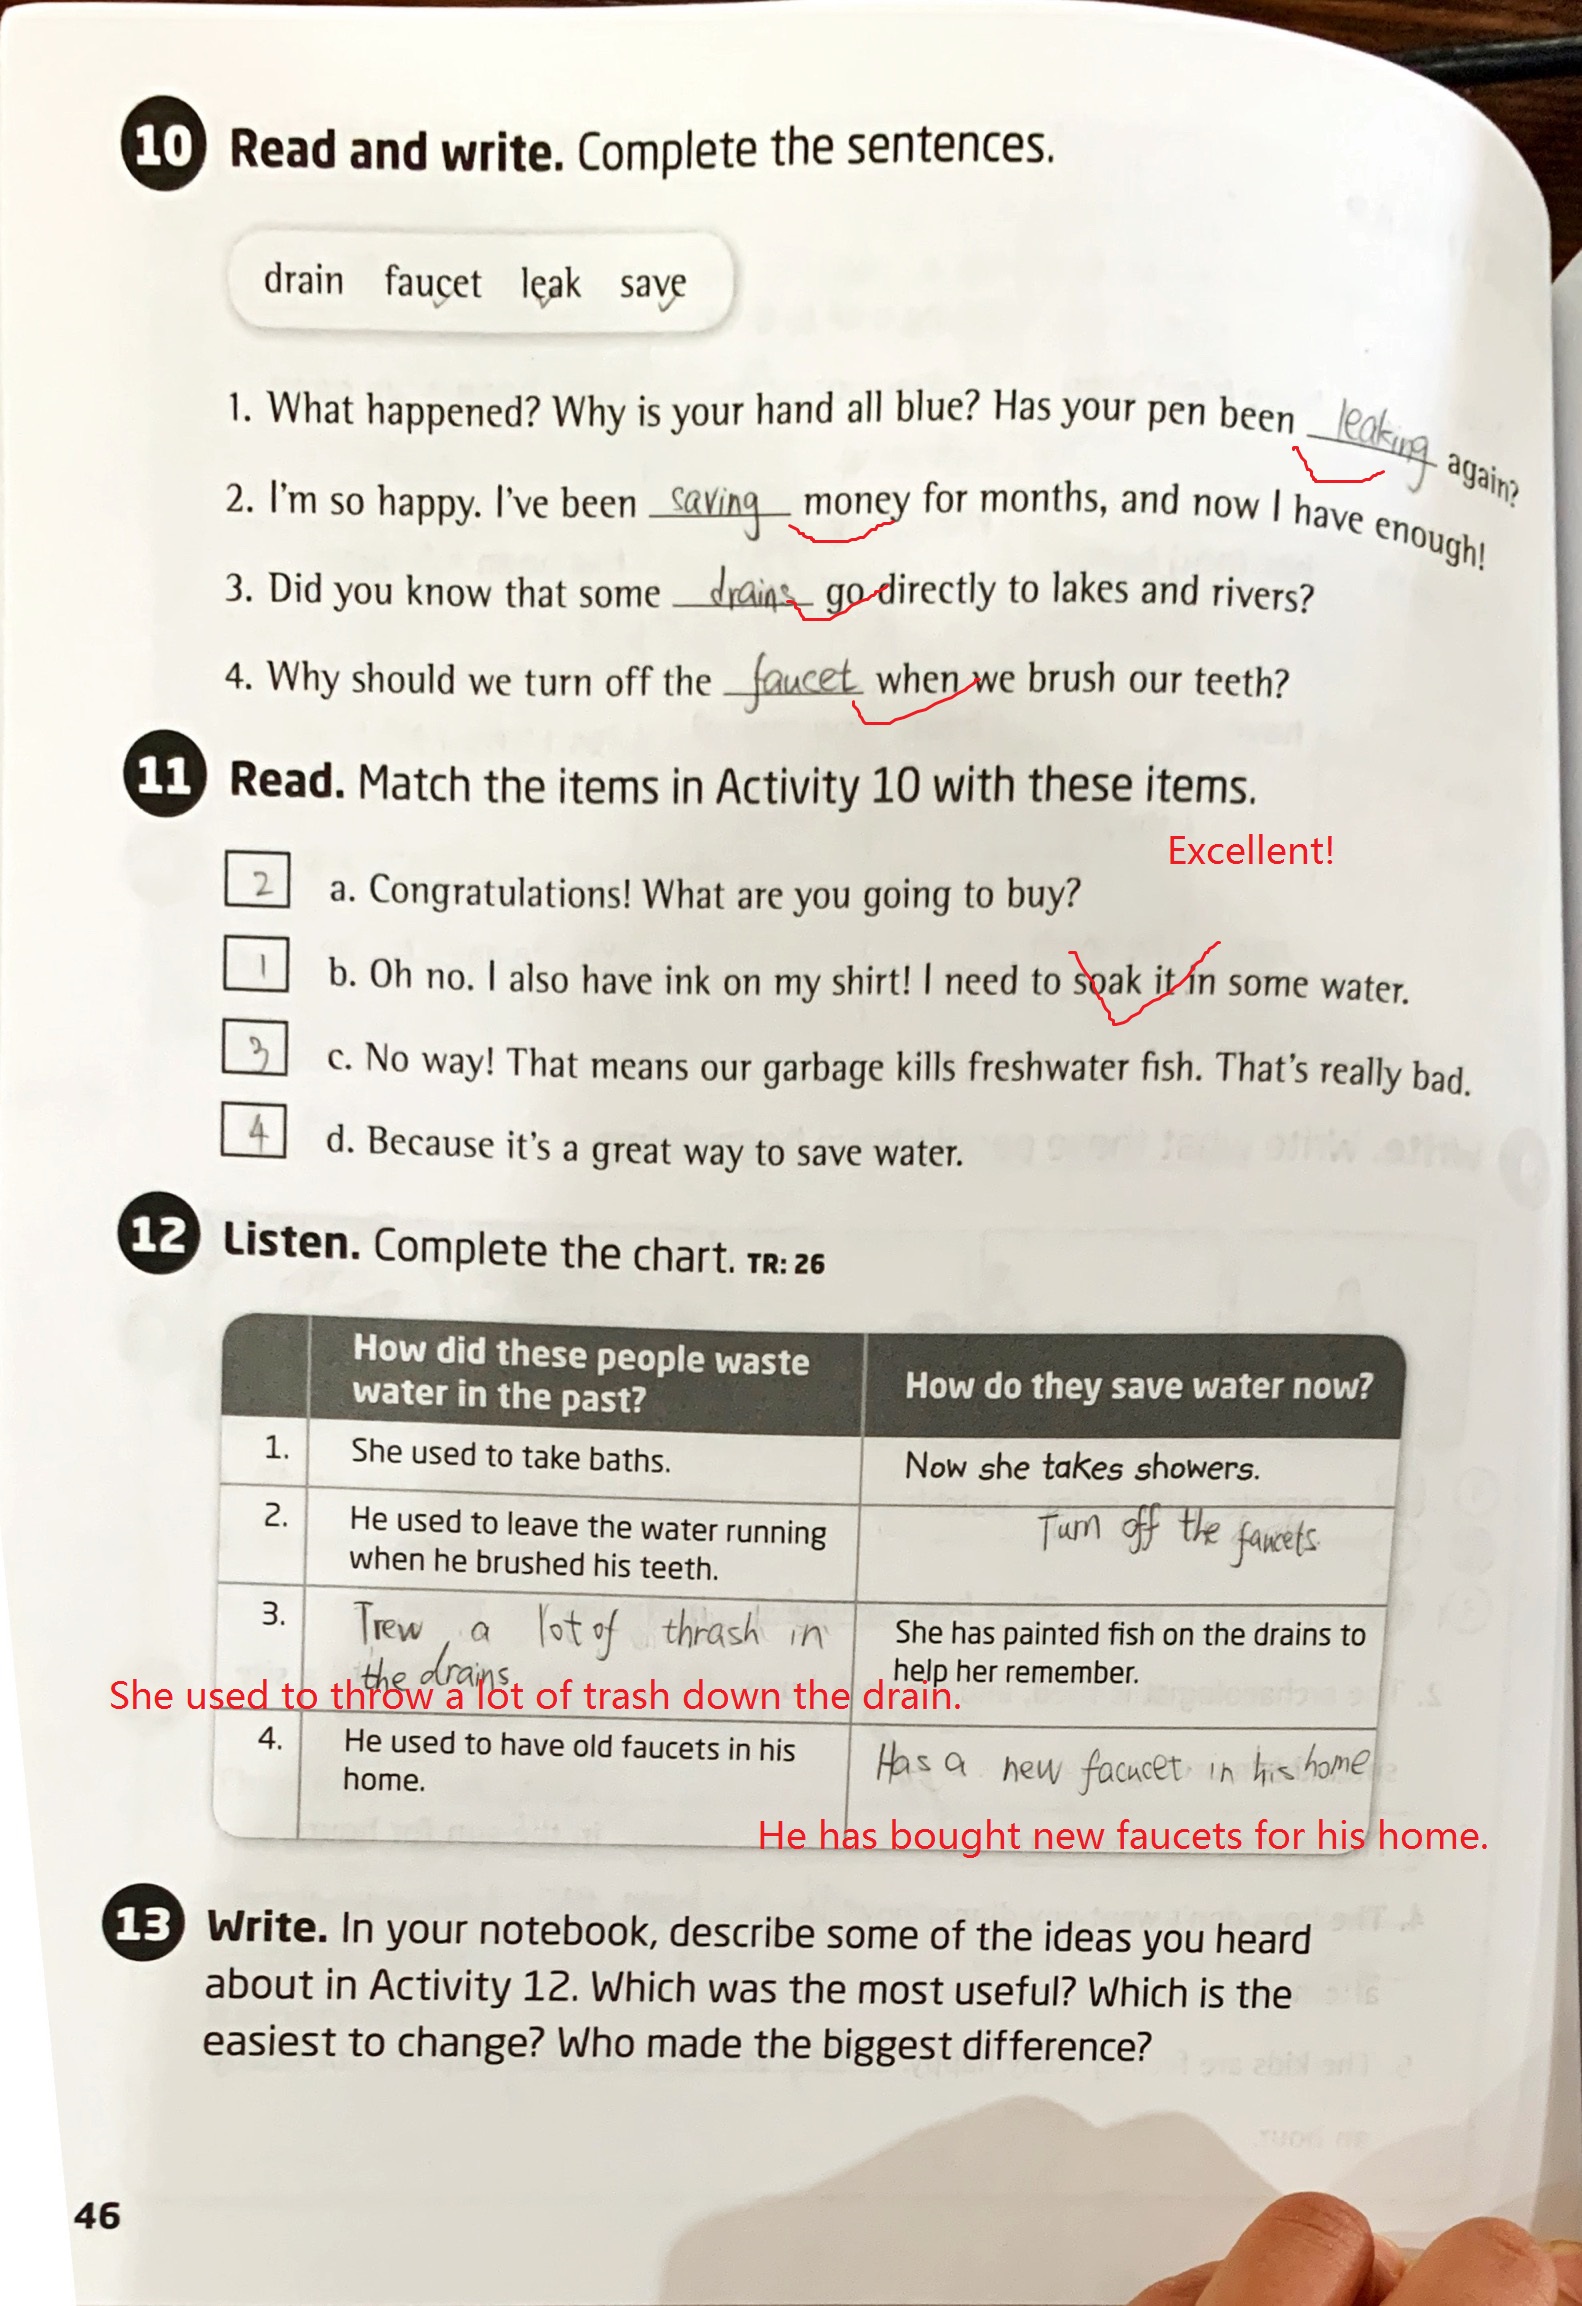 10 Read and write. Complete the sentences.
drain faucet leak save
1. What happened? Why is your hand all blue? Has your pen been leaking again?
2. I'm so happy. I've been saving money for months, and now I have enough!
3. Did you know that some drains go directly to lakes and rivers?
4. Why should we turn off the faucet when we brush our teeth?
11 Read. Match the items in Activity 10 with these items.
Excellent!
2 a. Congratulations! What are you going to buy?
1 b. Oh no. I also have ink on my shirt! I need to soak it in some water.
3 c. No way! That means our garbage kills freshwater fish. That's really bad.
4 d. Because it's a great way to save water.
12 Listen. Complete the chart. TR: 26
How did these people waste
water in the past?
How do they save water now?
1. She used to take baths.
Now she takes showers.
2. He used to leave the water running
when he brushed his teeth.
Turn off the faucets.
3. Trew a lot of thrash in
the drains.
She has painted fish on the drains to
help her remember.
She used to throw a lot of trash down the drain.
4. He used to have old faucets in his
home.
Has a new facucet in his home
He has bought new faucets for his home.
13 Write. In your notebook, describe some of the ideas you heard
about in Activity 12. Which was the most useful? Which is the
easiest to change? Who made the biggest difference?
46